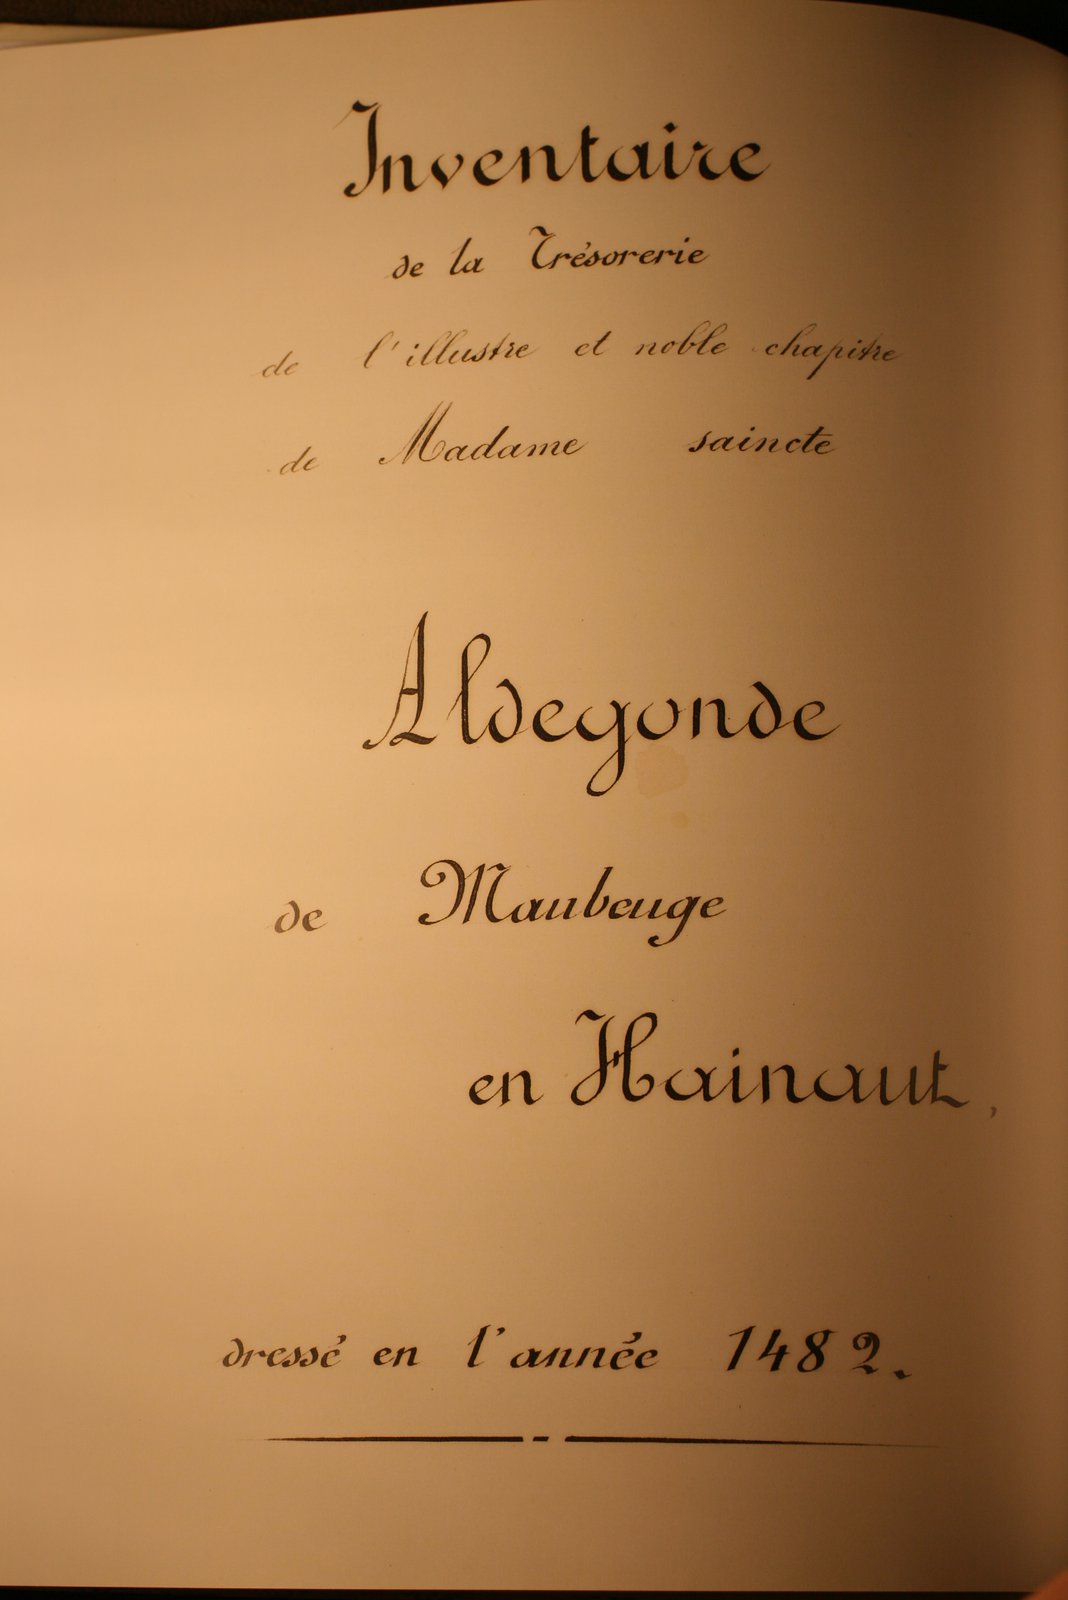 Inventaire
de la Trésorerie
de l'illustre et noble chapitre
de Madame saincte
Aldegonde
de Maubeuge
en Hainaut,
dressé en l'année 1482.